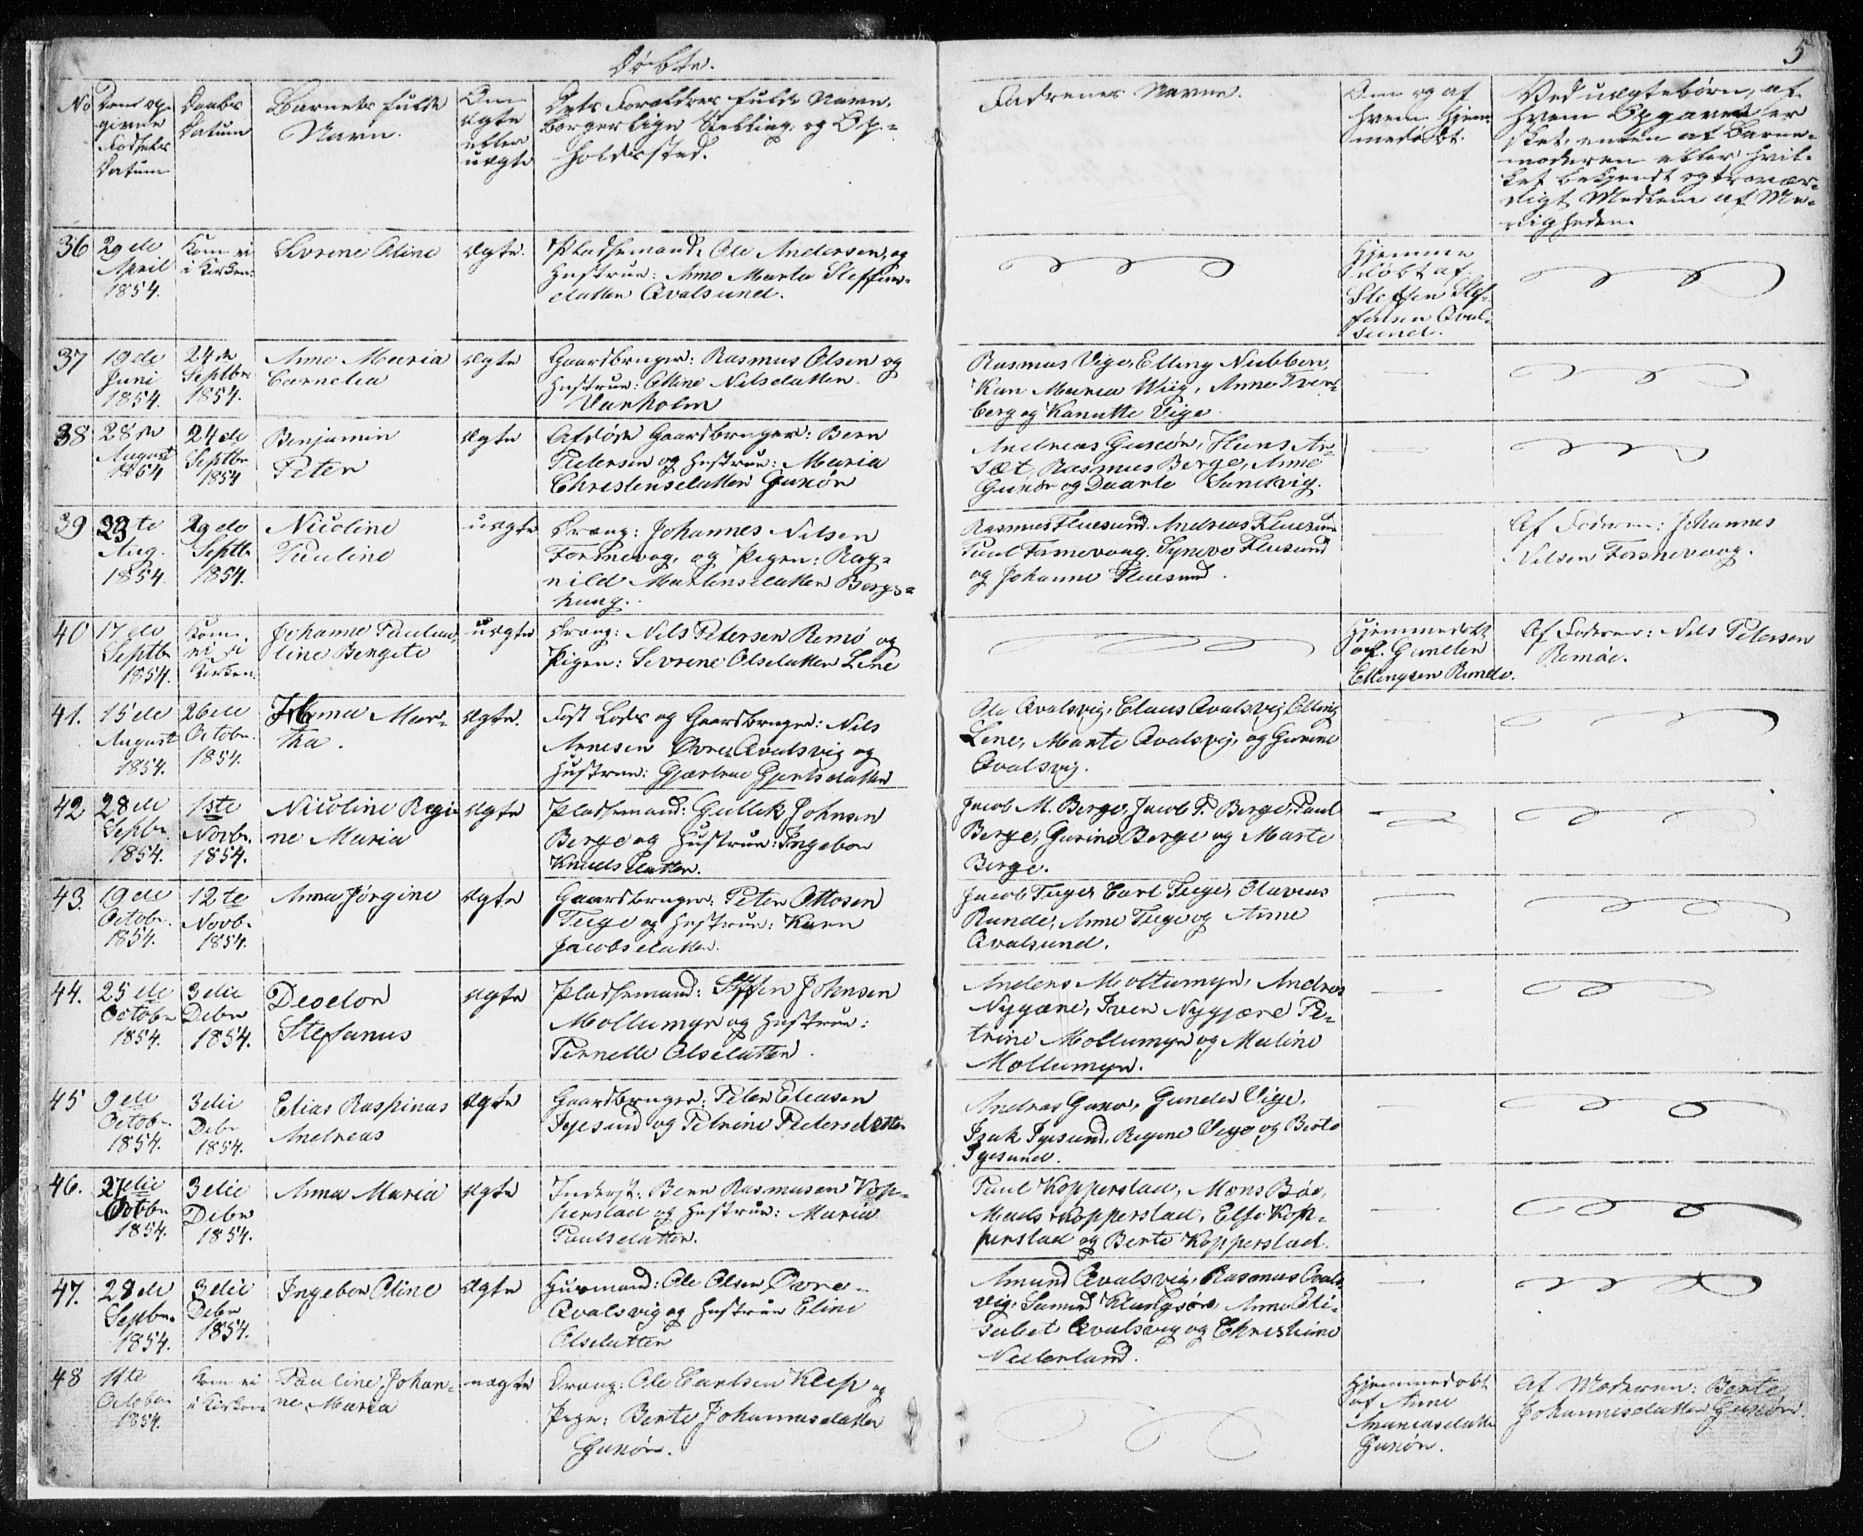 Døbte.
5
No
Barnets fulde
Navn.
Om
ægte
eller
uægte
Dets Forældres fulde Navn,
borgerlige Stilling, og Op-
holdssted.
Faddernes Navne.
Om og af
hvem hjem-
medøbt.
Ved uægtebørn, af
hvem Opgaven er
sket, enten af Barne-
moderen eller hvil-
ket bekjendt og trovær-
digt Medlem af Me-
nigheden.
36
29de
April
1854.
Kom ei
i Kirken.
Sevrine Oline
ægte.
Pladsemand: Ole Andersen, og
Hustrue: Ane Marta Steffens-
datter Qvalsund.
Hjemme
døbt af
Steffen Stef-
fensen Qval-
sund.
37
19de
Juni
1854.
24de
Septbr
1854.
Anne Maria
Cornelia
ægte
Gaardbruger: Rasmus Olsen og
Hustrue: Oline Nilsdatter
Vanholm
Rasmus Vige, Elling Nubben,
Karn Maria Wiig, Anne Tver-
berg og Kanutte Vige.
38
28de
August
1854
24de
Septbr
1854
Benjamin
Peter
ægte
Afdøde Gaardbruger: Bern
Pedersen og Hustrue: Maria
Christensdatter Gurskøe
Andreas , Hans Aa-
sæt, Rasmus Berge, Anne
og Daarte Sandvig.
39
23te
Aug.
1854
29de
Septbr
1854.
Nicoline
Pauline
uægte
Dræng: Johannes Nilsen
Fosnevog, og Pigen: Rag-
nild Martinsdatter Bergs-
haug.
Rasmus Fluesund. Andreas Fluesund
Paul Fosnevaag. Syneve Fluesund
og Johanne Fluesund.
Af Faderen: Johannes
Nilsen Fosnevaag.
40
17de
Septbr
1854.
Kom
ei i
Kirken.
Johanne Paulin
line Bengete
uægte
Dræng: Nils Petersen Remø og
Pigen: Sevrine Olsdatter Leine
Hjemmedøbt
af. Gunder
Ellingsen Runde.
Af Faderen: Nils Petersen
Remøe.
41.
15de
August
1854.
26de
Octobr.
1854.
Mar-
tha.
ægte.
Fast Lods og Gaardbruger: Nils
Arnesen Øvre Qvalsvig og
Hustrue: Gjærtrue Gjertsdatter
Ole Qvalsvig, Claus Qvalsvig, Elling
Leine, Marte Qvalsvig, og Gurine
Qvalsvig.
42
28de
Septbr.
1854.
1ste
Novbr.
1854.
Nicoline Regi-
ne Maria
ægte
Pladsemand: Gullik Johnsen
Berge og Hustrue: Ingebor
Knudsdatter.
Jacob M. Berge, Jacob P. Berge, Paul
Berge, Gurine Berge og Marte
Berge.
43.
19de
Octobr.
1854.
12te
Novbr.
1854.
Anna Jørgine
ægte
Gaardbruger: Peter Ottosen
Teige og Hustrue: Karn
Jacobsdatter.
Jacob Teige, Carl Teige, Olavius
Runde, Anne Teige og Anne
Qvalsund.
44.
25de
Octobr
1854.
3die
Debr
1854.
Deselor
Stefanus
ægte
Pladsemand: Steffen Johnsen
Moltumyr og Hustrue:
Pernelle Olsdatter.
Anders Moltumyr, Andreas
Nygjære, Iver Nygjære Pe-
trine Moltumyr og Maline
Moltumyr.
45
9de
Octobr.
1854.
3die
Debr
1854.
Elias Raspinus
Andreas
ægte
Gaardbruger: Peter Eliasen
Igesund og Petrine Pedersdatter
Andreas , Gunder Vige,
Isak Igesund, Regine Vige og Berte
Igesund.
46.
27de
Octbr
1854.
3die
Debr
1854.
Anna Maria
ægte
Inderst: Bern Rasmusen Kop-
perstad og Hustrue: Maria
Paulsdatter.
Paul Kopperstad, Mons Bøe,
Mads Kopperstad, Else Kop-
perstad og Berte Kopperstad.
47.
28de
Septbr.
1854.
3die
Debr
1854.
Ingebor Oline
ægte
Husmand: Ole Olsen Øvre-
Qvalsvig og Hustrue Eline
Olsdatter
Amund Qvalsvig, Rasmus Qvals-
vig, Samund Klungsør, Anne Eli-
sabet Qvalsvig og Christiane
Nederland.
48
1ste
October
1854.
Kom ei
i Kirken
Pauline Johan-
ne Maria
uægte
Dræng: Ole Carlsen Kleep og
Pige: Berte Johannesdatter
Gurskøe.
Hjemmedøbt
af Anne
Ananiasdatter
Gurskøe.
Af Moderen: Berte
Johannesdatter Gurskøe.